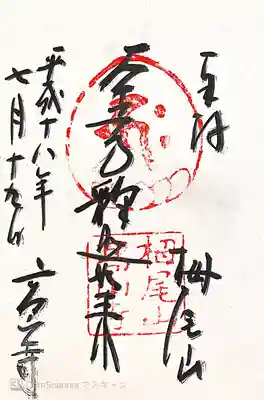 奉拝
栂尾山
釋迦如来
平成十八年
七月十九日
高山寺
栂尾山
高山寺
CamScanner でスキャン